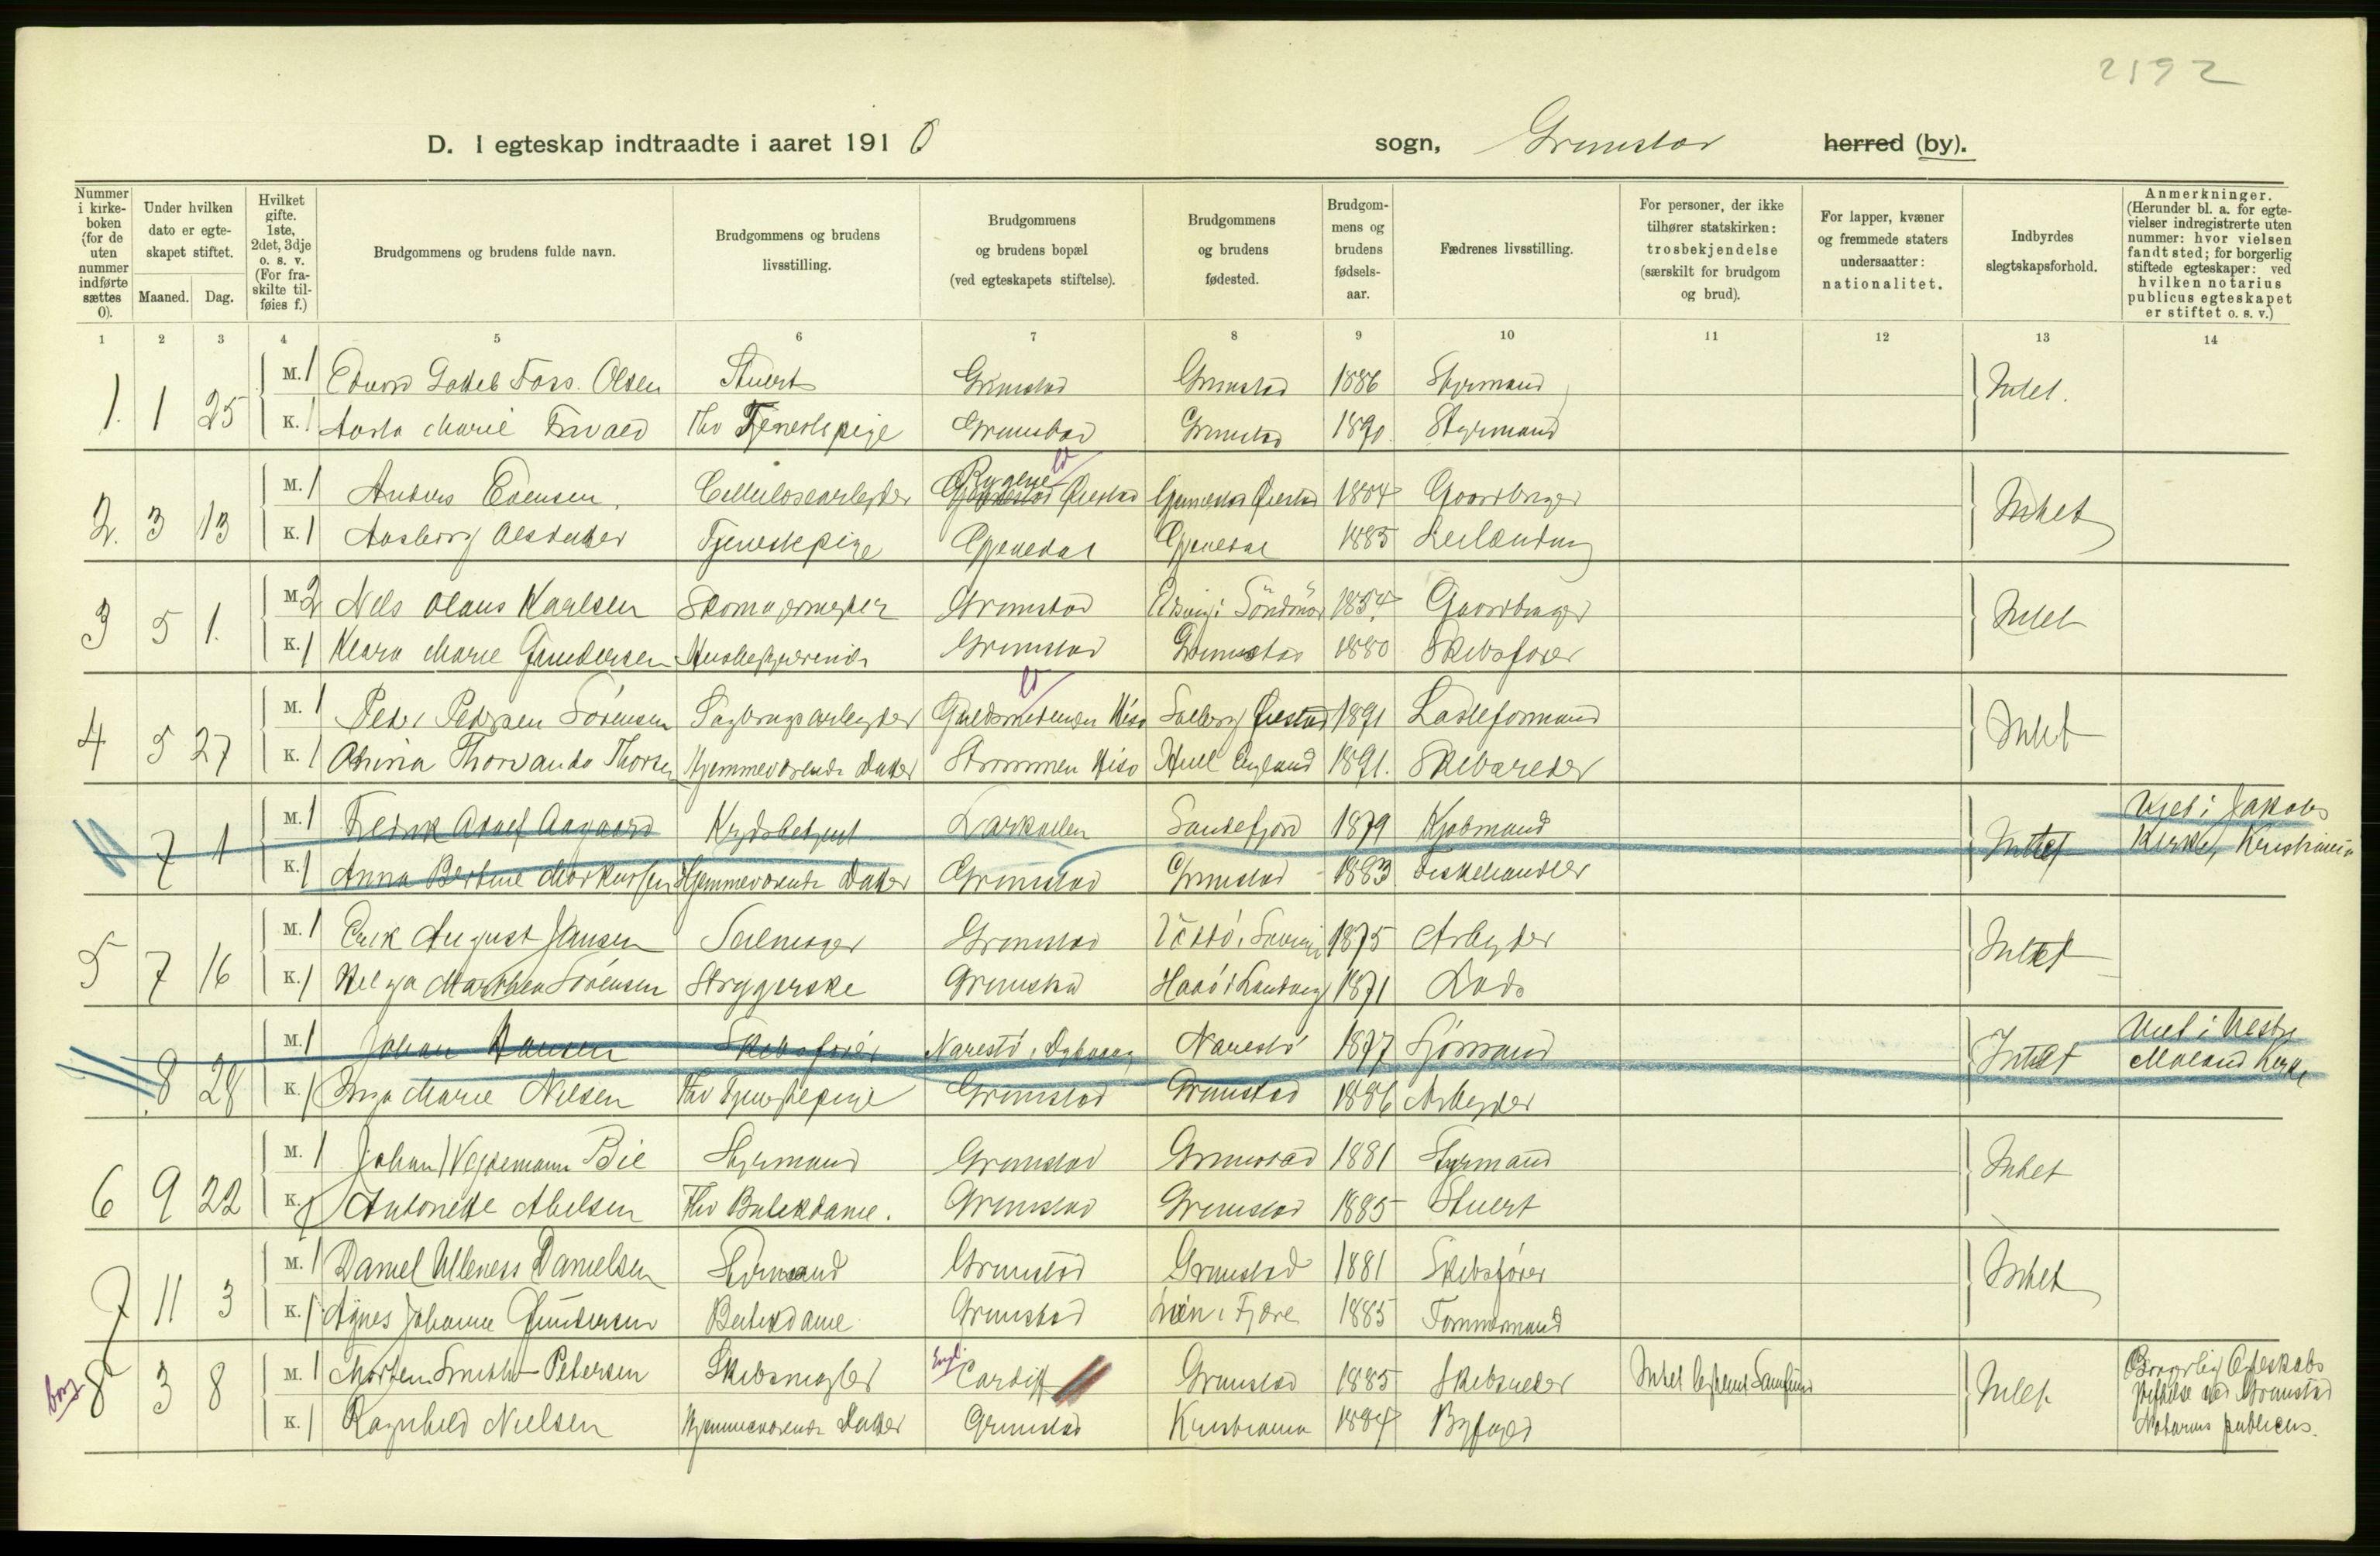 2192
D. I egteskap indtraadte i aaret 1910 sogn, Grimstad herred (by).
Nummer i kirke-boken (for de uten nummer indførte sættes 0).
Under hvilken dato er egte-skapet stiftet.
Maaned. Dag.
Hvilket gifte. 1ste, 2det, 3dje o. s. v. (For fra-skilte til-føies f.)
Brudgommens og brudens fulde navn.
Brudgommens og brudens livsstilling.
Brudgommens og brudens bopæl (ved egteskapets stiftelse).
Brudgommens og brudens fødested.
Brudgom-mens og brudens fødsels-aar.
Fædrenes livsstilling.
For personer, der ikke tilhører statskirken: trosbekjendelse (særskilt for brudgom og brud).
For lapper, kvæner og fremmede staters undersaatter: nationalitet.
Indbyrdes slegtskapsforhold.
Anmerkninger. (Herunder bl. a. for egte-vielser indregistrerte uten nummer: hvor vielsen fandt sted; for borgerlig stiftede egteskaper: ved hvilken notarius publicus egteskapet er stiftet o. s. v.)
1 2 3 4 5 6 7 8 9 10 11 12 13 14
1. 1 25 M. 1 Edvard Foss Olsen Stuert Grimstad Grimstad 1886 Styrmand Intet.
K. 1 Aasta Marie Fhv Tjenestepige Grimstad Grimstad 1890. Styrmand
2. 3 13 M. 1 Anders Evensen, Cellulosearbeider Rygene Øiestad Øiestad 1884 Gaardbruger Intet
K. 1 Aasborg Olsdatter Tjenestepige Gjevedal Gjevedal 1885 Leilænding
3 5 1. M. 2 Nils Olaus Karlsen Skomagermester Grimstad Söndmör 1854 Gaardbruger Intet
K. 1 Klara Marie Gundersen Husbestyrerinde Grimstad Grimstad 1880 Skibsfører
4 5 27 M. 1 Peder Pedersen Sörensen Sagbrugsarbeider Guldsmedengen Hisö Solberg Øiestad 1891 Lasteformand Intet
K. 1 Thorvanda Thorsen Hjemmeværende Datter Strømmen Hisö Hull England 1891. Skibsreder
7 1 M. 1 Fredrik Adolf Aagaard Krydsbetjent Larkollen Sandefjord 1879 Kjøbmand Intet Viet i Jakobs
K. 1 Anna Bertine Markussen Hjemmeværende Datter Grimstad Grimstad 1883 Fiskehandler Kirke, Kristiania
5 7 16 M. 1 Erik August Jansen Seilmager Grimstad 1875 Arbeider Intet
K. 1 Helga Marthea Sörensen Strygerske Grimstad 1871 Lods
8 28 M. 1 Johan Hansen Skibsfører Narestö i Dybvaag Narestö 1877 Sjömand Intet Viet i Vestre
K. 1 Inga Marie Nilsen Fhv Tjenestepige Grimstad Grimstad 1886 Arbeider Moland Kirke
6 9 22 M. 1 Johan Bie Styrmand Grimstad Grimstad 1881 Styrmand Intet
K. 1 Antonette Abelsen Fhv Butikdame. Grimstad Grimstad 1885 Stuert
7 11 3 M. 1 Daniel Ulleness Danielsen Styrmand Grimstad Grimstad 1881 Skibsfører Intet
K. 1 Agnes Johanne Gundersen Butikdame Grimstad Vien i Fjære 1885 Tømmermand
borg. 8 3 8 M. 1 Morten Smith-Petersen Skibsmægler Engl. Cardiff Grimstad 1885 Skibsreder Intet bestemt Samfund Intet Borgerlig Egteskabs
K. 1 Ragnhild Nielsen Hjemmeværende Datter Grimstad Kristiania 1884 Byfoged stiftelse ved Grimstad
Notarius publicus.